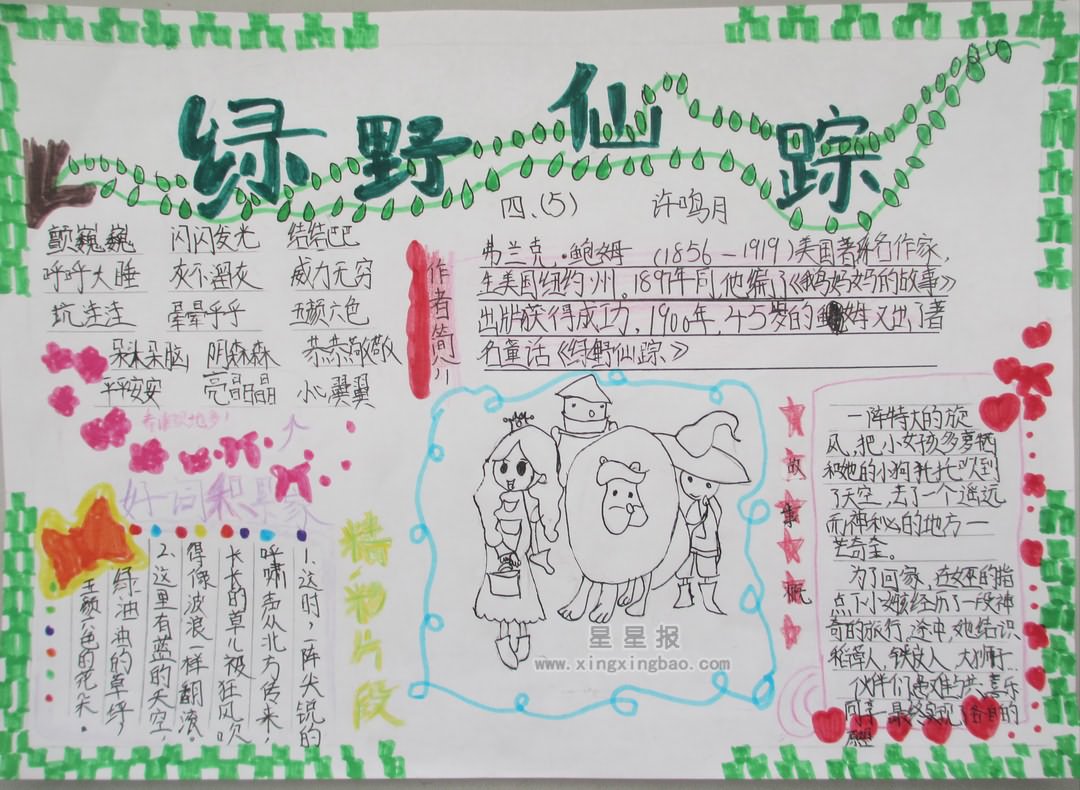 绿野仙踪
四、(5) 许鸣月
颤巍巍 闪闪发光 结结巴巴
呼呼大睡 灰不溜灰 威力无穷
坑洼洼 晕晕乎乎 五颜六色
呆头呆脑 阴森森 恭恭敬敬
平平安安 亮晶晶 小心翼翼
作者简介
弗兰克·鲍姆 (1856-1919)美国著名作家,
生美国纽约州。1897年间,他编了《鹅妈妈的故事》
出版获得成功,1900年,45岁的鲍姆又出了著
名童话《绿野仙踪》
精彩片段
1、这时,一阵尖锐的
呼啸声从北方传来,
长长的草儿被狂风吹
得像波浪一样翻滚。
2、这里有蓝蓝的天空,
绿油油的草坪,
五颜六色的花朵。
故事概
一阵特大的旋
风,把小女孩多萝茜
和她的小狗托托吹到
了天空,去了一个遥远
而神秘的地方——
芒奇金。
为了回家,在女巫的指
点下小女孩经历了一段神
奇的旅行,途中,她结识
稻草人,铁皮人,大狮子…
伙伴们患难与共,喜乐
同享,最终实现了各自的
愿望
星星报
www.xingxingbao.com